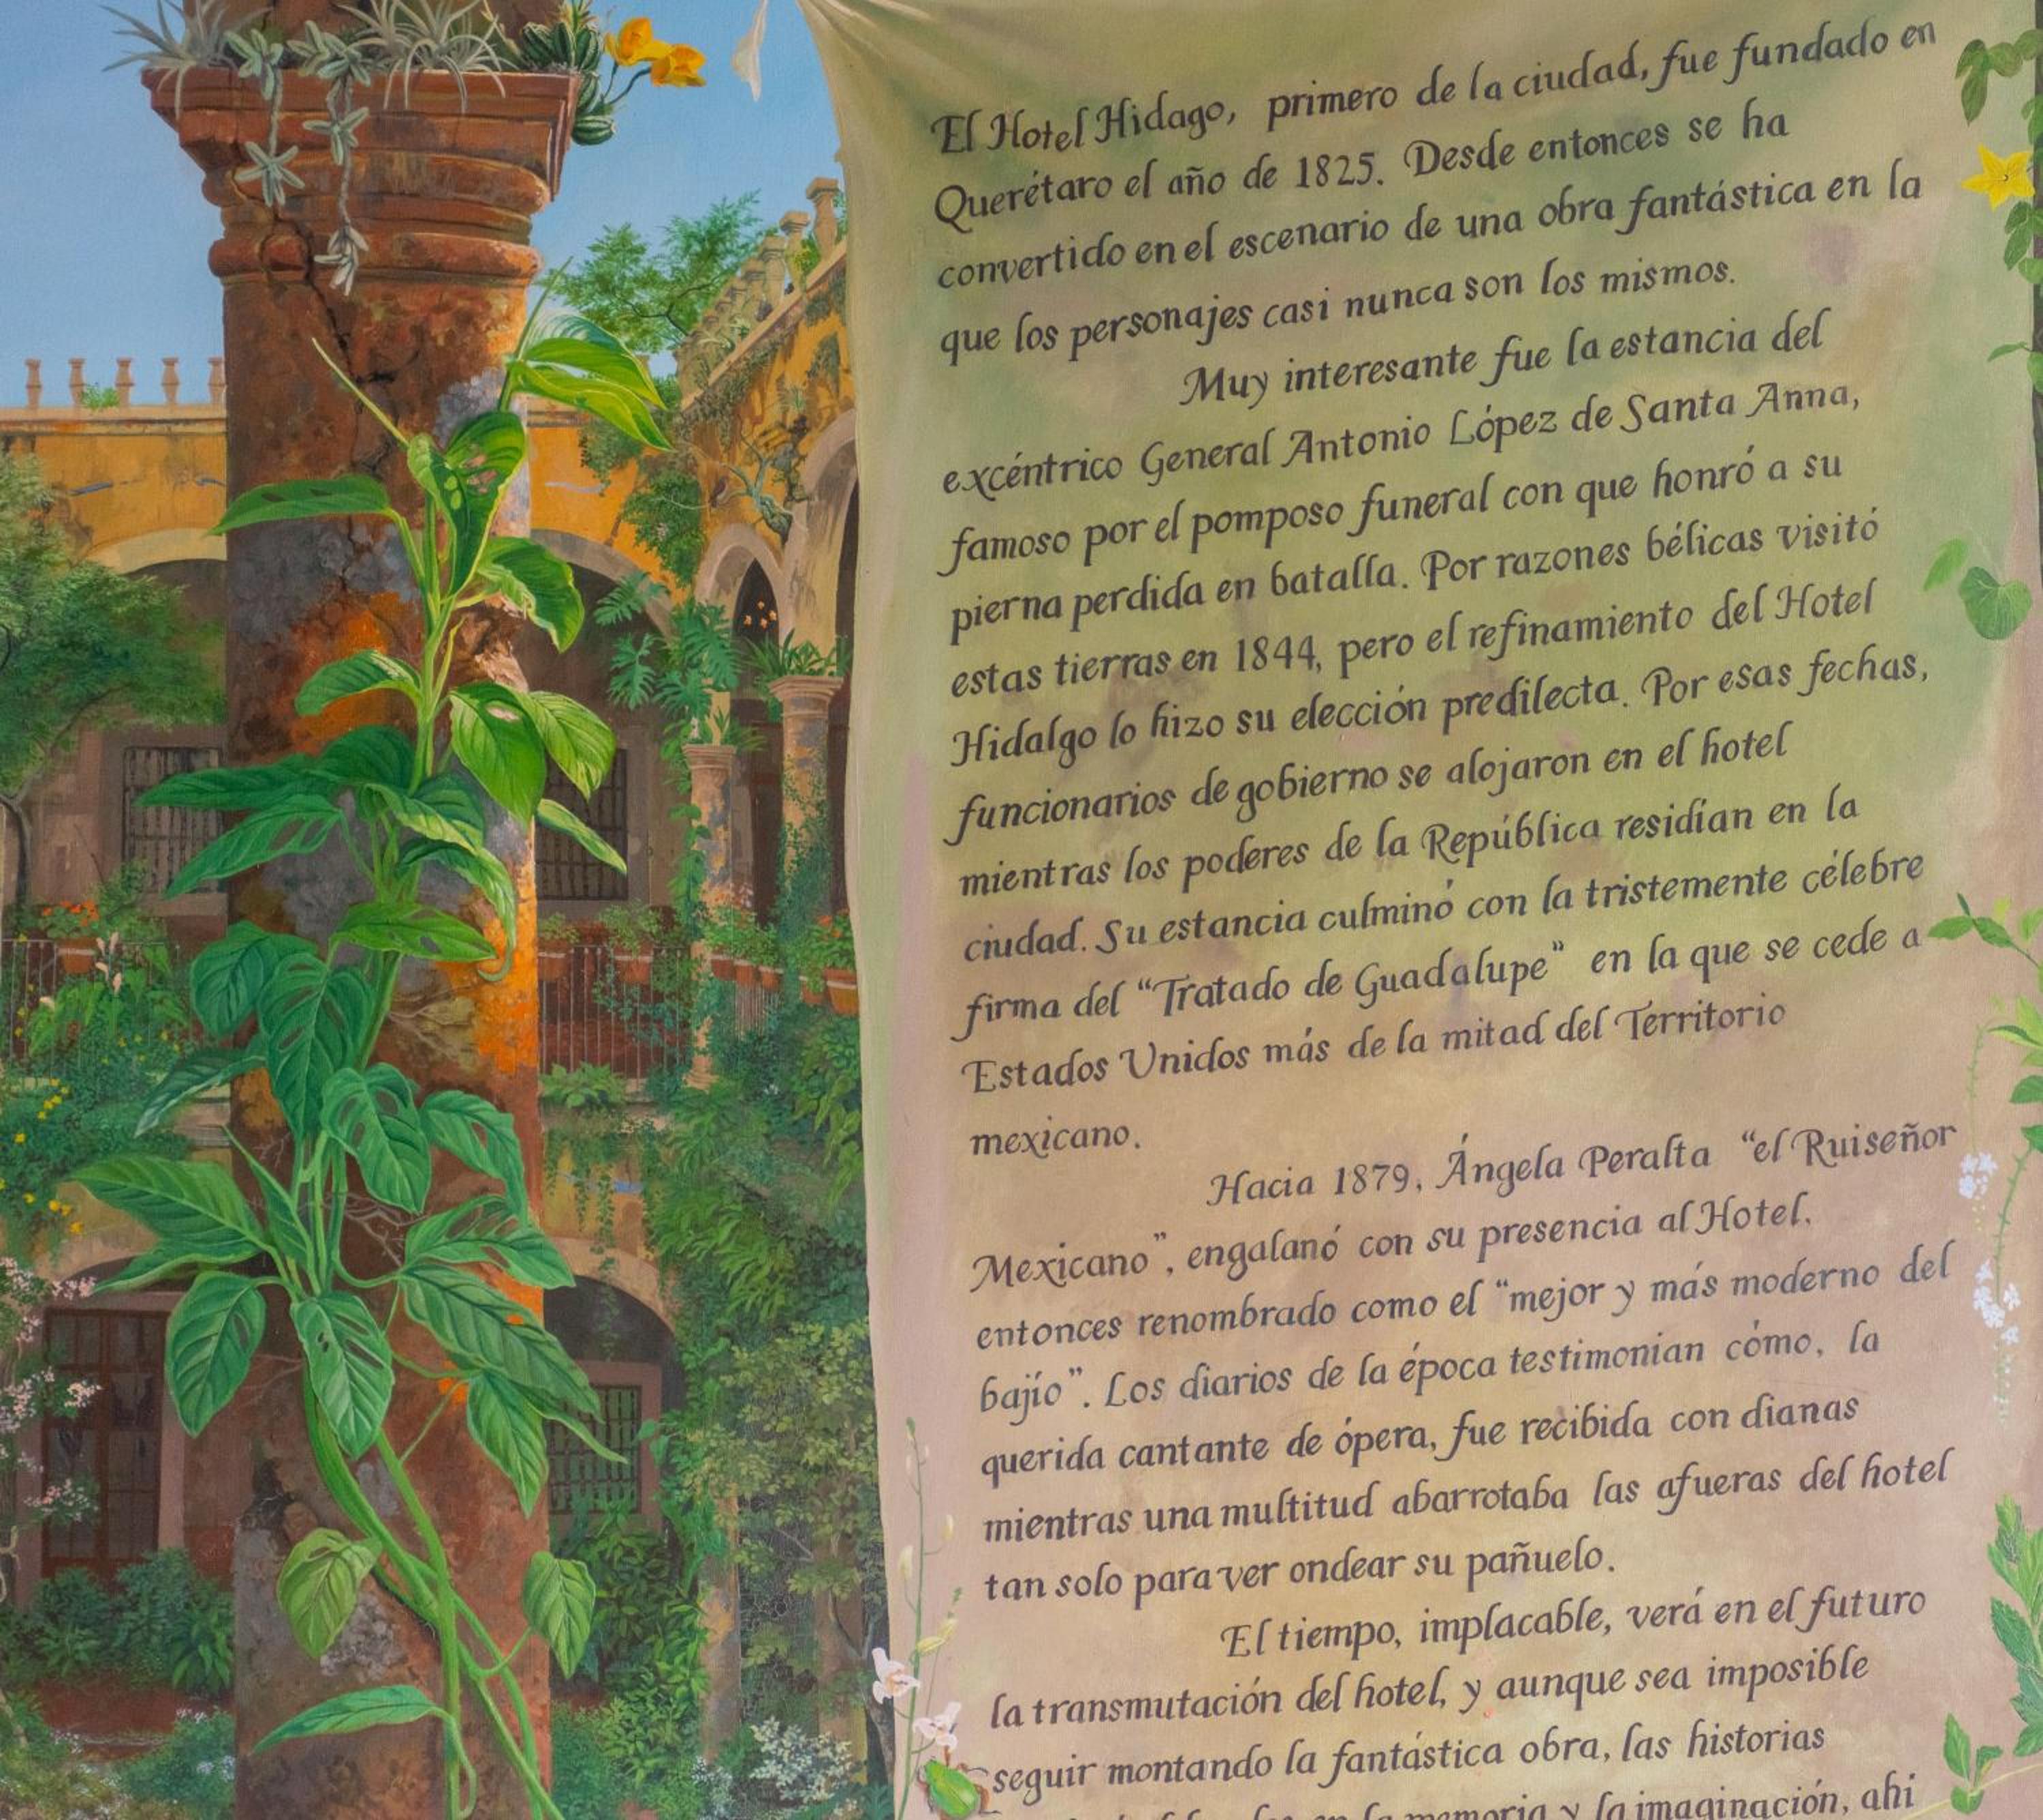 El Hotel Hidago, primero de la ciudad, fue fundado en
Querétaro el año de 1825. Desde entonces se ha
convertido en el escenario de una obra fantástica en la
que los personajes casi nunca son los mismos.
Muy interesante fue la estancia del
excéntrico General Antonio López de Santa Anna,
famoso por el pomposo funeral con que honró a su
pierna perdida en batalla. Por razones bélicas visitó
estas tierras en 1844, pero el refinamiento del Hotel
Hidalgo lo hizo su elección predilecta. Por esas fechas,
funcionarios de gobierno se alojaron en el hotel
mientras los poderes de la República residían en la
ciudad. Su estancia culminó con la tristemente célebre
firma del “Tratado de Guadalupe” en la que se cede a
Estados Unidos más de la mitad del Territorio
mexicano.
Hacia 1879, Ángela Peralta “el Ruiseñor
Mexicano”, engalanó con su presencia al Hotel,
entonces renombrado como el “mejor y más moderno del
bajío”. Los diarios de la época testimonian cómo, la
querida cantante de ópera, fue recibida con dianas
mientras una multitud abarrotaba las afueras del hotel
tan solo para ver ondear su pañuelo.
El tiempo, implacable, verá en el futuro
la transmutación del hotel, y aunque sea imposible
seguir montando la fantástica obra, las historias
en la memoria y la imaginación, ahí